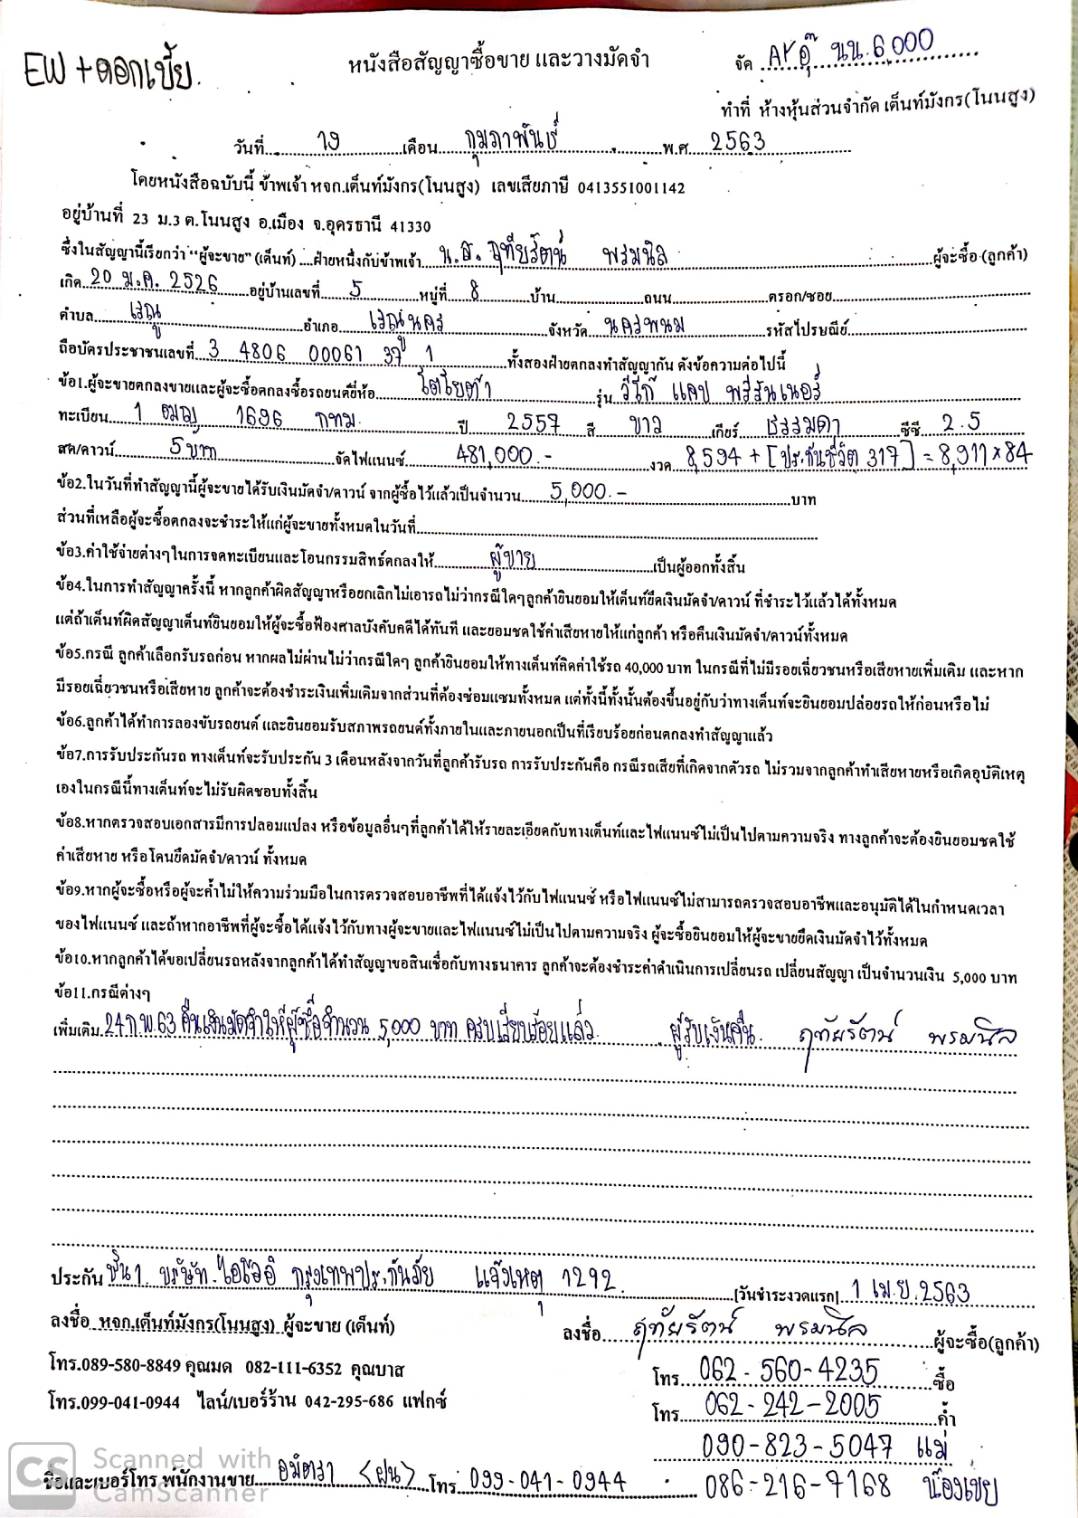 EW + ดอกเบี้ย.
หนังสือสัญญาซื้อขาย และวางมัดจำ
จัด AY อุ๊ นน. 6,000
ทำที่ ห้างหุ้นส่วนจำกัด เต็นท์มังกร(โนนสูง)
วันที่ 19 เดือน กุมภาพันธ์ พ.ศ. 2563
โดยหนังสือฉบับนี้ ข้าพเจ้า หจก.เต็นท์มังกร(โนนสูง) เลขเสียภาษี 0413551001142
อยู่บ้านที่ 23 ม.3 ต.โนนสูง อ.เมือง จ.อุดรธานี 41330
ซึ่งในสัญญานี้เรียกว่า "ผู้จะขาย" (เต็นท์) ....ฝ่ายหนึ่งกับข้าพเจ้า น.ส. ฤทัยรัตน์ พรมนิล ผู้จะซื้อ (ลูกค้า)
เกิด 20 ม.ค. 2526 อยู่บ้านเลขที่ 5 หมู่ที่ 8 บ้าน ถนน ตรอก/ซอย
ตำบล เรณู อำเภอ เรณูนคร จังหวัด นครพนม รหัสไปรษณีย์
ถือบัตรประชาชนเลขที่ 3 4806 00061 37 1 ทั้งสองฝ่ายตกลงทำสัญญากัน ดังข้อความต่อไปนี้
ข้อ1.ผู้จะขายตกลงขายและผู้จะซื้อตกลงซื้อรถยนต์ยี่ห้อ โตโยต้า รุ่น วีโก้ แคป พรีรันเนอร์
ทะเบียน 1 ฒญ 1696 กทม. ปี 2557 สี ขาว เกียร์ ธรรมดา ซีซี 2.5
สด/ดาวน์ 5 บาท จัดไฟแนนซ์ 481,000.- งวด 8,594 + [ประกันชีวิต 317] = 8,911 x 84
ข้อ2.ในวันที่ทำสัญญานี้ผู้จะขายได้รับเงินมัดจำ/ดาวน์ จากผู้ซื้อไว้แล้วเป็นจำนวน 5,000.- บาท
ส่วนที่เหลือผู้จะซื้อตกลงจะชำระให้แก่ผู้จะขายทั้งหมดในวันที่
ข้อ3.ค่าใช้จ่ายต่างๆในการจดทะเบียนและโอนกรรมสิทธ์ตกลงให้ ผู้ขาย เป็นผู้ออกทั้งสิ้น
ข้อ4.ในการทำสัญญาครั้งนี้ หากลูกค้าผิดสัญญาหรือยกเลิกไม่เอารถไม่ว่ากรณีใดๆลูกค้ายินยอมให้เต็นท์ยึดเงินมัดจำ/ดาวน์ ที่ชำระไว้แล้วได้ทั้งหมด
แต่ถ้าเต็นท์ผิดสัญญาเต็นท์ยินยอมให้ผู้จะซื้อฟ้องศาลบังคับคดีได้ทันที และยอมชดใช้ค่าเสียหายให้แก่ลูกค้า หรือคืนเงินมัดจำ/ดาวน์ทั้งหมด
ข้อ5.กรณี ลูกค้าเลือกรับรถก่อน หากผลไม่ผ่านไม่ว่ากรณีใดๆ ลูกค้ายินยอมให้ทางเต็นท์คิดค่าใช้รถ 40,000 บาท ในกรณีที่ไม่มีรอยเฉี่ยวชนหรือเสียหายเพิ่มเติม และหาก
มีรอยเฉี่ยวชนหรือเสียหาย ลูกค้าจะต้องชำระเงินเพิ่มเติมจากส่วนที่ต้องซ่อมแซมทั้งหมด แต่ทั้งนี้ทั้งนั้นต้องขึ้นอยู่กับว่าทางเต็นท์จะยินยอมปล่อยรถให้ก่อนหรือไม่
ข้อ6.ลูกค้าได้ทำการลองขับรถยนต์ และยินยอมรับสภาพรถยนต์ทั้งภายในและภายนอกเป็นที่เรียบร้อยก่อนตกลงทำสัญญาแล้ว
ข้อ7.การรับประกันรถ ทางเต็นท์จะรับประกัน 3 เดือนหลังจากวันที่ลูกค้ารับรถ การรับประกันคือ กรณีรถเสียที่เกิดจากตัวรถ ไม่รวมจากลูกค้าทำเสียหายหรือเกิดอุบัติเหตุ
เองในกรณีนี้ทางเต็นท์จะไม่รับผิดชอบทั้งสิ้น
ข้อ8.หากตรวจสอบเอกสารมีการปลอมแปลง หรือข้อมูลอื่นๆที่ลูกค้าได้ให้รายละเอียดกับทางเต็นท์และไฟแนนซ์ไม่เป็นไปตามความจริง ทางลูกค้าจะต้องยินยอมชดใช้
ค่าเสียหาย หรือโดนยึดมัดจำ/ดาวน์ ทั้งหมด
ข้อ9.หากผู้จะซื้อหรือผู้จะค้ำไม่ให้ความร่วมมือในการตรวจสอบอาชีพที่ได้แจ้งไว้กับไฟแนนซ์ หรือไฟแนนซ์ไม่สามารถตรวจสอบอาชีพและอนุมัติได้ในกำหนดเวลา
ของไฟแนนซ์ และถ้าหากอาชีพที่ผู้จะซื้อได้แจ้งไว้กับทางผู้จะขายและไฟแนนซ์ไม่เป็นไปตามความจริง ผู้จะซื้อยินยอมให้ผู้จะขายยึดเงินมัดจำไว้ทั้งหมด
ข้อ10.หากลูกค้าได้ขอเปลี่ยนรถหลังจากลูกค้าได้ทำสัญญาขอสินเชื่อกับทางธนาคาร ลูกค้าจะต้องชำระค่าดำเนินการเปลี่ยนรถ เปลี่ยนสัญญา เป็นจำนวนเงิน 5,000 บาท
ข้อ11.กรณีต่างๆ
เพิ่มเติม. 24 ก.พ. 63 คืนเงินมัดจำให้ผู้ซื้อจำนวน 5,000 บาท ครบเรียบร้อยแล้ว. ผู้รับเงินคืน. ฤทัยรัตน์ พรมนิล
ประกัน ชั้น 1 บริษัท. ไอโออิ กรุงเทพประกันภัย แจ้งเหตุ 1292. [วันชำระงวดแรก] 1 เม.ย. 2563
ลงชื่อ หจก.เต็นท์มังกร(โนนสูง) ผู้จะขาย (เต็นท์)
ลงชื่อ ฤทัยรัตน์ พรมนิล ผู้จะซื้อ(ลูกค้า)
โทร.089-580-8849 คุณมด 082-111-6352 คุณบาส
โทร. 062-560-4235 ซื้อ
โทร.099-041-0944 ไลน์/เบอร์ร้าน 042-295-686 แฟกซ์
โทร. 062-242-2005 ค้ำ
090-823-5047 แม่
ชื่อและเบอร์โทร พนักงานขาย อมิตรา <ฝน> โทร. 099-041-0944
086-216-7168 น้องเขย
CS Scanned with
CamScanner